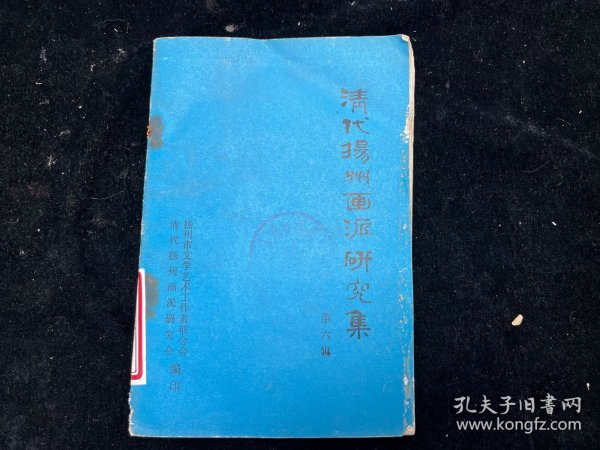 清代揚州画派研究集
第六辑
扬州市文学艺术工作者联合会
清代扬州画派研究会
编印
孔夫子旧書网
www.kongfz.com